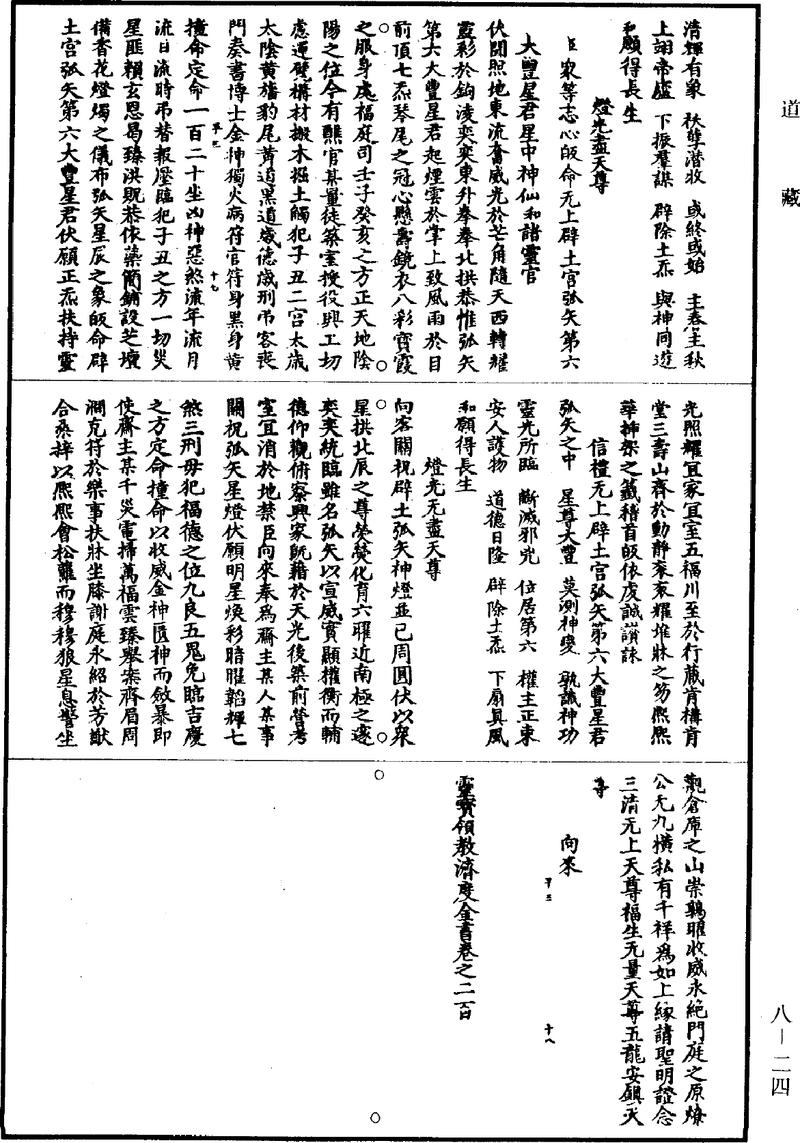 道藏
清輝有象　秋孽潛收　或終或始　主春主秋
上詡帝廬　下振羣謀　辟除土炁　與神同遊
和願得長生
燈光盡天尊
臣衆等志心皈命无上辟土宮弧矢第六
大豐星君星中神仙和諸靈官
伏聞照地東流奮威光於芒角隨天西轉耀
靈彩於鉤凌奕奕東升拳拳北拱恭惟弧矢
第六大豐星君起煙雲於掌上致風雨於目
前頂七炁琴尾之冠心懸壽鏡衣八彩寶霞
之服身處福庭司壬子癸亥之方正天地陰
陽之位今有醮官某量徒築室授役興工切
慮運甓構材搬木掘土觸犯子丑二宮太歲
太陰黃旛豹尾黃道黑道歲德歲刑弔客喪
門奏書博士金神獨火病符官符身黑身黃
撞命定命一百二十坐凶神惡煞流年流月
流日流時弔替報壓臨犯子丑之方一切災
星匪賴玄恩曷臻洪貺恭依蘂簡鋪設芝壇
備香花燈燭之儀布弧矢星辰之象皈命辟
土宮弧矢第六大豐星君伏願正炁扶持靈
平三
十七
光照耀宜家宜室五福川至於行藏肯構肯
堂三壽山齊於動靜袞袞耀堆牀之笏熙熙
華揷架之籤稽首皈依虔誠讃詠
信禮无上辟土宮弧矢第六大豐星君
弧矢之中　星尊大豐　莫測神變　孰識神功
靈光所臨　斷滅邪兇　位居第六　權主正東
安人護物　道德日隆　辟除土炁　下扇眞風
和願得長生
燈光无盡天尊
向來關祝辟土弧矢神燈並已周圓伏以衆
星拱北辰之尊熒熒化育六曜近南極之邃
奕奕統臨雖名弧矢以宣威實顯權衡而輔
德仰觀俯察興家旣藉於天光後築前營考
室宜消於地禁臣向來奉爲齋主某人某事
關祝弧矢星燈伏願明星煥彩暗曜韜輝七
煞三刑毋犯福德之位九良五鬼免臨吉慶
之方定命撞命以收威金神匿神而斂暴即
使齋主某千災電掃萬福雲臻舉案齊眉周
澗克符於樂事扶牀坐膝謝庭永紹於芳猷
合桑梓以熙熙會松蘿而穆穆狼星息警坐
觀倉庫之山崇鶉曜收威永絶門庭之原燎
公无九橫私有千祥爲如上縁請聖明證念
三清无上天尊福生无量天尊五龍安鎭天
尊
向來
平三
十八
靈寶領教濟度金書卷之二百
八－二四